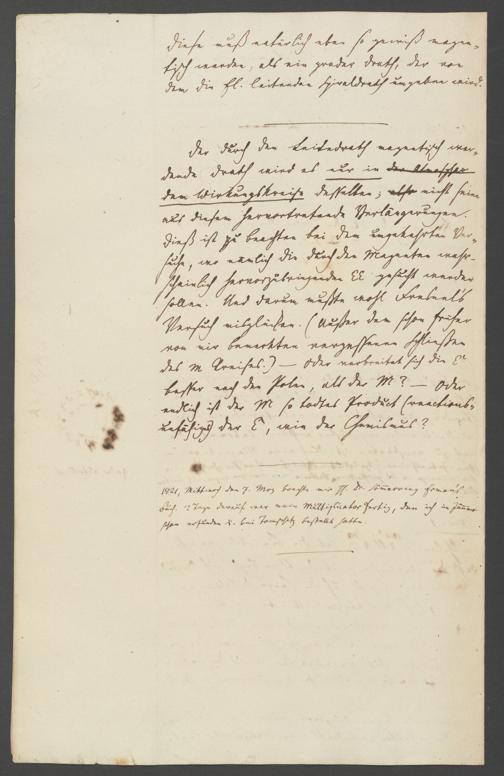 diese muß natürlich eben so gewiß magne-
tisch werden, als ein grader Drath, der von
dem die El. leitenden Spiraldrath umgeben wird.
Der durch den Leitedrath magnetisch wer-
dende Drath wird es nur in der Atmosphäre
dem Wirkungskreise desselben; aber nicht seine
aus diesem hervortretende Verlängerungen.
Dieß ist zu beachten bei dem umgekehrten Ver-
suche, wo nämlich die durch den Magneten wahr-
scheinlich hervorzubringenden EE gesucht werden
sollen. Und darum mußte wohl Fresnels
Versuch misglücken. (Außer dem schon früher
von mir bemerkten vergessenen Schließen
des M Kreises.) — Oder verbreitet sich die E
besser nach den Polen, als der M? — Oder
endlich ist der M so todtes Product (reactions-
unfähig) der E, wie der Chemismus?
1821, Mittwoch den 7. März brachte mir H. Dr. Sömmerring Ermans
Buch. 2 Tage darauf war mein Multiplicator fertig, den ich im
schon erfunden u. bei bestellt hatte.